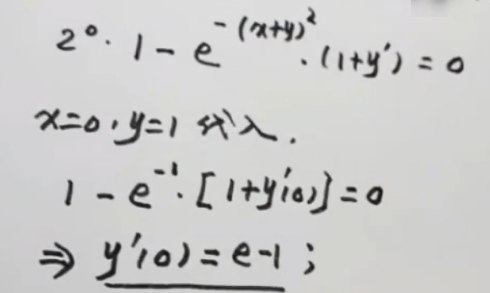 2°. 1 - e^{-(x+y)^2} · (1+y') = 0
x=0, y=1 代入.
1 - e^{-1} · [1+y'(0)] = 0
⇒ y'(0) = e-1 ;